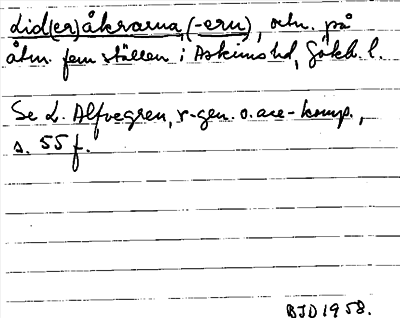 Lid(er)åkrarna, (-ern), ortn. på
åtm. fem ställen i Askims hd, Götebl. l.
Se L. Alfvegren, r-gen. o. are-komp.,
s. 55 f.
BJD 1958.